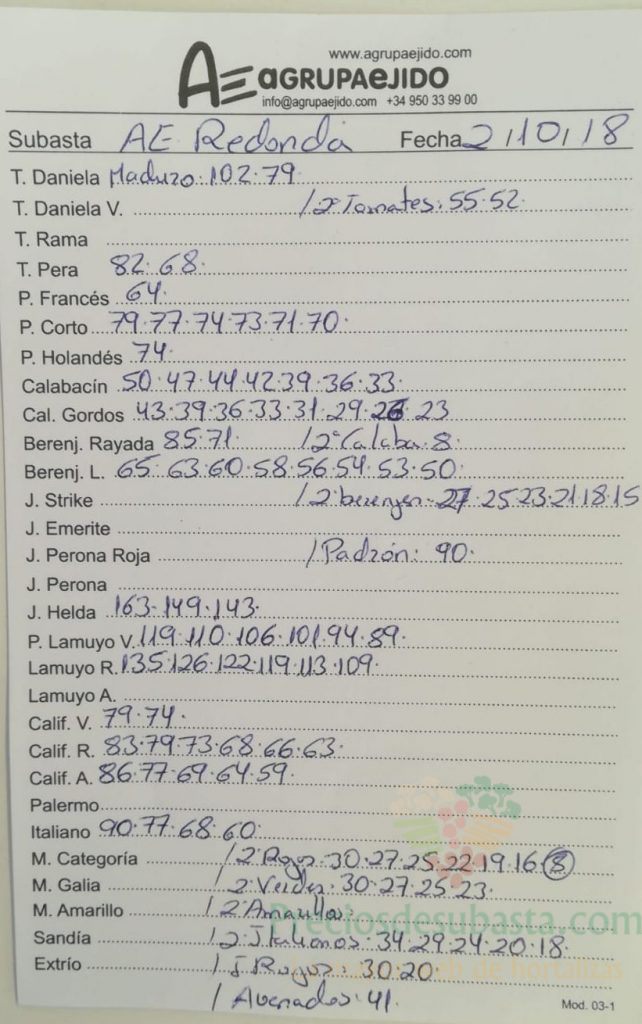 www.agrupaejido.com
AE aGRUPAeJIDO
info@agrupaejido.com +34 950 33 99 00
Subasta AE Redonda Fecha 2/10/18
T. Daniela Maduro: 102·79
T. Daniela V. /2ª Tomates: 55·52
T. Rama
T. Pera 82·68·
P. Francés 64·
P. Corto 79·77·74·73·71·70·
P. Holandés 74·
Calabacín 50·47·44·42·39·36·33·
Cal. Gordos 43·39·36·33·31·29·26·23
Berenj. Rayada 85·71· /2ª Calaba·8·
Berenj. L. 65·63·60·58·56·54·53·50·
J. Strike /2ª berenjen·27·25·23·21·18·15
J. Emerite
J. Perona Roja /Padrón: 90·
J. Perona
J. Helda 163·149·143·
P. Lamuyo V. 119·110·106·101·94·89·
Lamuyo R. 135·126·122·119·113·109·
Lamuyo A.
Calif. V. 79·74·
Calif. R. 83·79·73·68·66·63·
Calif. A. 86·77·69·64·59·
Palermo
Italiano 90·77·68·60·
M. Categoría /2ª Rojos·30·27·25·22·19·16·8
M. Galia /2ª Verdes·30·27·25·23·
M. Amarillo /2ª Amarillos·
Preciosdesubasta.com
Sandía /2ª Italianos·34·29·24·20·18·
Extrío /I Rojos: 30·20·
web de hortalizas
/Asurcados·41· Mod. 03-1